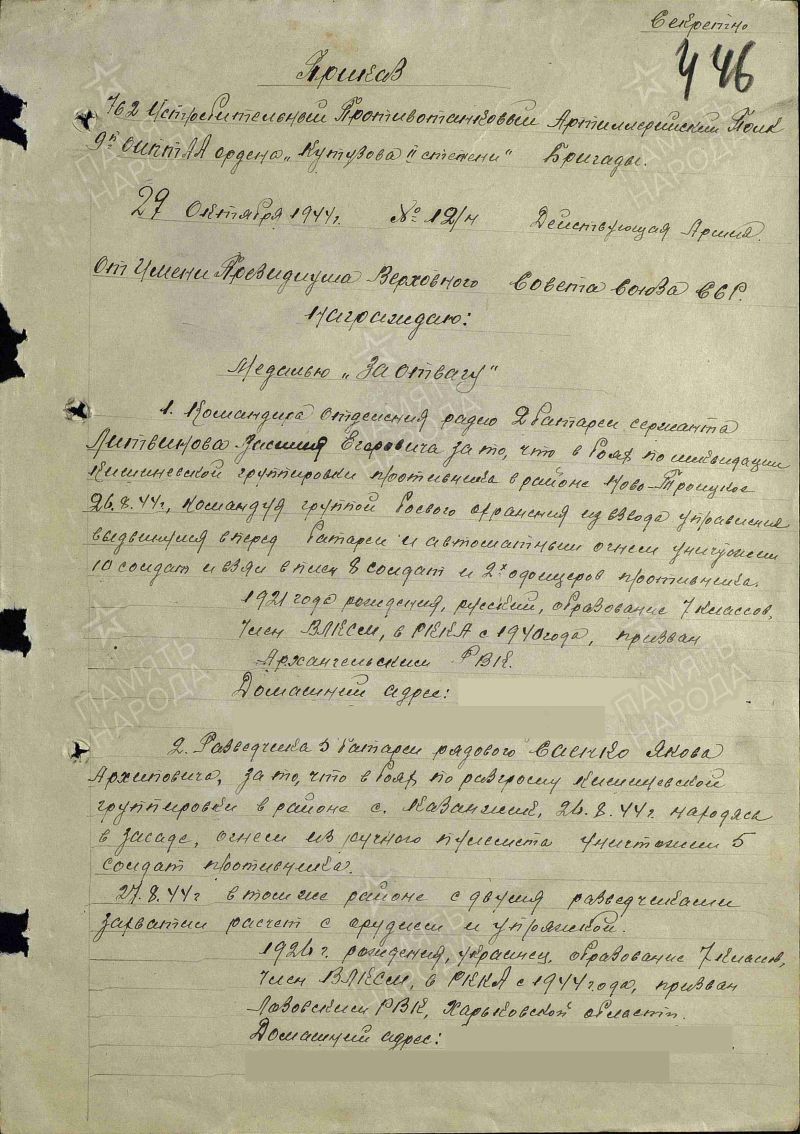 Секретно
446
Приказ
762 Истребительный Противотанковый Артиллерийский Полк
9й ОИПТАА ордена „Кутузова II степени" Бригады.
29 Октября 1944г. № 12/н Действующая Армия.
От Имени Президиума Верховного Совета Союза ССР.
Награждаю:
Медалью „За отвагу"
1. Командира отделения радио 2 батареи сержанта
Литвинова Егоровича за то, что в боях по ликвидации
Кишиневской группировки противника в районе Ново-Троицкое
26.8.44г., командуя группой боевого охранения из взвода управления
выдвинулся вперед батареи и автоматным огнем уничтожил
10 солдат и взял в плен 8 солдат и 2х офицеров противника.
1921 года рождения, русский, образование 7 классов,
член ВЛКСМ, в РККА с 1940 года, призван
Архангельским РВК.
Домашний адрес:
2. Разведчика 5 батареи рядового Саенко Якова
Архиповича, за то, что в боях по разгрому Кишиневской
группировки в районе с. Казанжик, 26.8.44г. находясь
в засаде, огнем из ручного пулемета уничтожил 5
солдат противника.
27.8.44г в том же районе с двумя разведчиками
захватил расчет с орудием и упряжкой.
1926 г. рождения, украинец, образование 7 классов,
член ВЛКСМ, в РККА с 1944 года, призван
Лазовским РВК, Харьковской области.
Домашний адрес:
ПАМЯТЬ
НАРОДА